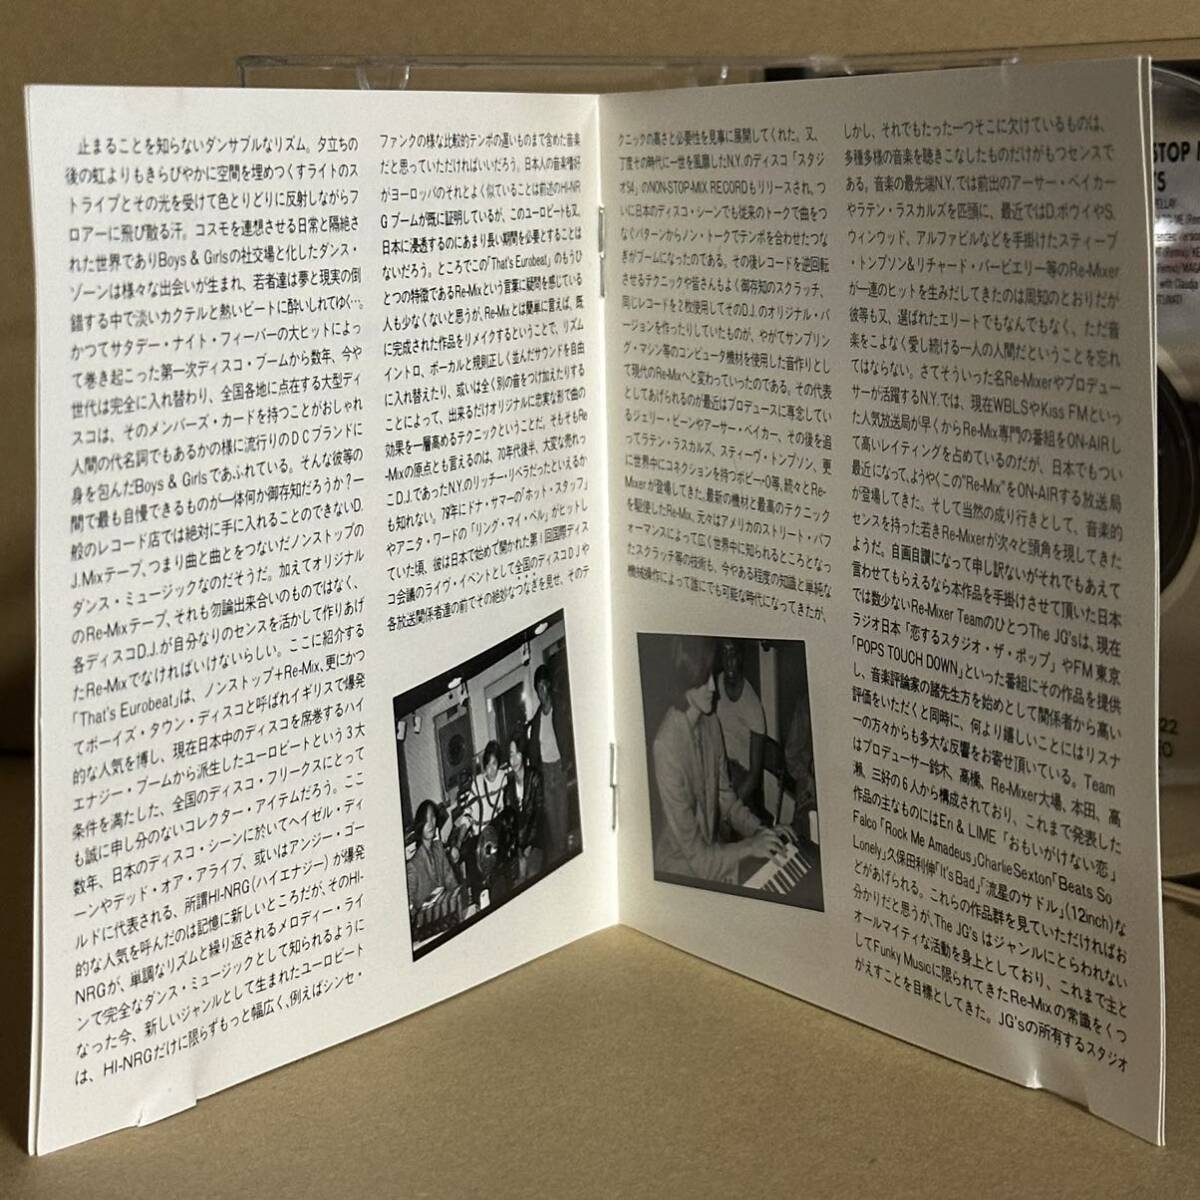 止まることを知らないダンサブルなリズム。夕立ちの
後の虹よりもきらびやかに空間を埋めつくすライトのス
トライプとその光を受けて色とりどりに反射しながらフ
ロアーに飛び散る汗。コスモを連想させる日常と隔絶さ
れた世界でありBoys & Girlsの社交場と化したダンス・
ゾーンは様々な出会いが生まれ、若者達は夢と現実の倒
錯する中で淡いカクテルと熱いビートに酔いしれてゆく…。
かつてサタデー・ナイト・フィーバーの大ヒットによっ
て巻き起こった第一次ディスコ・ブームから数年、今や
世代は完全に入れ替わり、全国各地に点在する大型ディ
スコは、そのメンバーズ・カードを持つことがおしゃれ
人間の代名詞でもあるかの様に流行りのDCブランドに
身を包んだBoys & Girlsであふれている。そんな彼等の
間で最も自慢できるものが一体何か御存知だろうか？一
般のレコード店では絶対に手に入れることのできないD.
J.Mixテープ、つまり曲と曲とをつないだノンストップの
ダンス・ミュージックなのだそうだ。加えてオリジナル
のRe-Mixテープ、それも勿論出来合いのものではなく、
各ディスコD.J.が自分なりのセンスを活かして作りあげ
たRe-Mixでなければいけないらしい。ここに紹介する
「That's Eurobeat」は、ノンストップ+Re-Mix、更にかつ
てボーイズ・タウン・ディスコと呼ばれイギリスで爆発
的な人気を博し、現在日本中のディスコを席巻するハイ
エナジー・ブームから派生したユーロビートという3大
条件を満たした、全国のディスコ・フリークスにとって
も誠に申し分のないコレクター・アイテムだろう。ここ
数年、日本のディスコ・シーンに於いてヘイゼル・ディ
ーンやデッド・オア・アライブ、或いはアンジー・ゴー
ルドに代表される、所謂HI-NRG(ハイエナジー)が爆発
的な人気を呼んだのは記憶に新しいところだが、そのHI-
NRGが、単調なリズムと繰り返されるメロディー・ライ
ンで完全なダンス・ミュージックとして知られるように
なった今、新しいジャンルとして生まれたユーロビート
は、HI-NRGだけに限らずもっと幅広く、例えばシンセ・
ファンクの様な比較的テンポの遅いものまで含めた音楽
だと思っていただければいいだろう。日本人の音楽嗜好
がヨーロッパのそれとよく似ていることは前述のHI-NR
Gブームが既に証明しているが、このユーロビートも又、
日本に浸透するのにあまり長い期間を必要とすることは
ないだろう。ところでこの「That's Eurobeat」のもうひ
とつの特徴であるRe-Mixという言葉に疑問を感じている
人も少なくないと思うが、Re-Mixとは簡単に言えば、既
に完成された作品をリメイクするということで、リズム
イントロ、ボーカルと規則正しく並んだサウンドを自由
に入れ替えたり、或いは全く別の音をつけ加えたりする
ことによって、出来るだけオリジナルに忠実な形で曲の
効果を一層高めるテクニックということだ。そもそもRe
-Mixの原点とも言えるのは、70年代後半、大変な売れっ
こD.J.であったN.Y.のリッチー・リベラだったといえるか
も知れない。79年にドナ・サマーの「ホット・スタッフ」
やアニタ・ワードの「リング・マイ・ベル」がヒットし
ていた頃、彼は日本で始めて開かれた第1回国際ディス
コ会議のライヴ・イベントとして全国のディスコD.J.や
各放送関係者達の前でその絶妙なつなぎを見せ、そのテ
クニックの高さと必要性を見事に展開してくれた。又、
丁度その時代に一世を風靡したN.Y.のディスコ「スタジ
オ54」のNON-STOP-MIX RECORDもリリースされ、つ
いに日本のディスコ・シーンでも従来のトークで曲をつ
なぐパターンからノン・トークでテンポを合わせたつな
ぎがブームになったのである。その後レコードを逆回転
させるテクニックや皆さんもよく御存知のスクラッチ、
同じレコードを2枚使用してそのD.J.のオリジナル・バ
ージョンを作ったりしていたものが、やがてサンプリン
グ・マシン等のコンピュータ機材を使用した音作りとし
て現代のRe-Mixへと変わっていったのである。その代表
としてあげられるのが最近はプロデュースに専念してい
るジェリー・ビーンやアーサー・ベイカー、その後を追
ってラテン・ラスカルズ、スティーヴ・トンプソン、更
に世界中にコネクションを持つボビー・O等、続々とRe-
Mixerが登場してきた。最新の機材と最高のテクニック
を駆使したRe-Mix、元々はアメリカのストリート・パフ
ォーマンスによって広く世界中に知られるところとなっ
たスクラッチ等の技術も、今やある程度の知識と単純な
機械操作によって誰にでも可能な時代になってきたが、
しかし、それでもたった一つそこに欠けているものは、
多種多様の音楽を聴きこなしたものだけがもつセンスで
ある。音楽の最先端N.Y.では前出のアーサー・ベイカー
やラテン・ラスカルズを匹頭に、最近ではD.ボウイやS.
ウィンウッド、アルファビルなどを手掛けたスティーブ
・トンプソン&リチャード・バービエリー等のRe-Mixer
が一連のヒットを生みだしてきたのは周知のとおりだが
彼等も又、選ばれたエリートでもなんでもなく、ただ音
楽をこよなく愛し続ける一人の人間だということを忘れ
てはならない。さてそういった名Re-Mixerやプロデュー
サーが活躍するN.Y.では、現在WBLSやKiss FMといっ
た人気放送局が早くからRe-Mix専門の番組をON-AIRし
て高いレイティングを占めているのだが、日本でもつい
最近になって、ようやくこの"Re-Mix"をON-AIRする放送局
が登場してきた。そして当然の成り行きとして、音楽的
センスを持った若きRe-Mixerが次々と頭角を現してきた
ようだ。自画自讃になって申し訳ないがそれでもあえて
言わせてもらえるなら本作品を手掛けさせて頂いた日本
では数少ないRe-Mixer TeamのひとつThe JG'sは、現在
ラジオ日本「恋するスタジオ・ザ・ポップ」やFM東京
「POPS TOUCH DOWN」といった番組にその作品を提供
し、音楽評論家の諸先生方を始めとして関係者から高い
評価をいただくと同時に、何より嬉しいことにはリスナ
ーの方々からも多大な反響をお寄せ頂いている。Team
はプロデューサー鈴木、高橋、Re-Mixer大場、本田、高
瀬、三好の6人から構成されており、これまで発表した
作品の主なものにはEri & LIME「おもいがけない恋」
Falco「Rock Me Amadeus」Charlie Sexton「Beats So
Lonely」久保田利伸「It's Bad」「流星のサドル」(12inch)な
どがあげられる。これらの作品群を見ていただければお
分かりだと思うが、The JG's はジャンルにとらわれない
オールマイティな活動を身上としており、これまで主と
してFunky Musicに限られてきたRe-Mixの常識をくつ
がえすことを目標としてきた。JG'sの所有するスタジオ
STOP M
TS
with Claudja
22